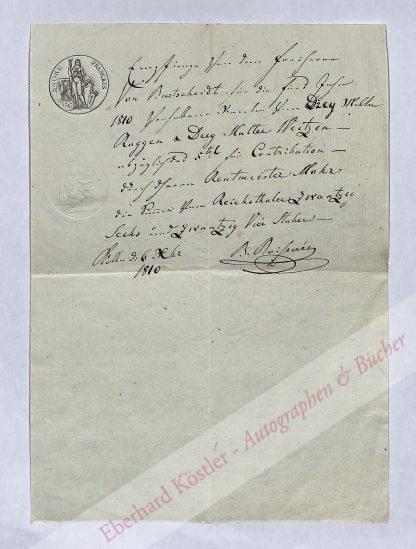 EMPIRE FRANÇAIS
Empfange von dem Freiherrn
von Bourscheidt für die
1810 Drey Malter
Roggen & Drey Malter Weitzen –
abzüglich für Contribution –
durch Herrn Rentmeister Mohr
die Summe von Reichsthaler Zwantzig
Sechs und Zwantzig Vier Stüber –
d. 6 Xbr
1810
B. Boisserée
Eberhard Köstler - Autographen & Bücher